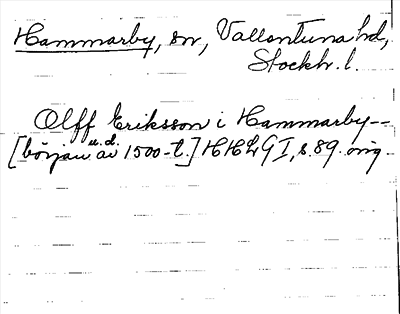 Hammarby, sn, Vallentuna hd,
Stockh. l.
Olff Eriksson i Hammarby--
[början av 1500-t.] u.d. HHLG I, s. 89. orig.